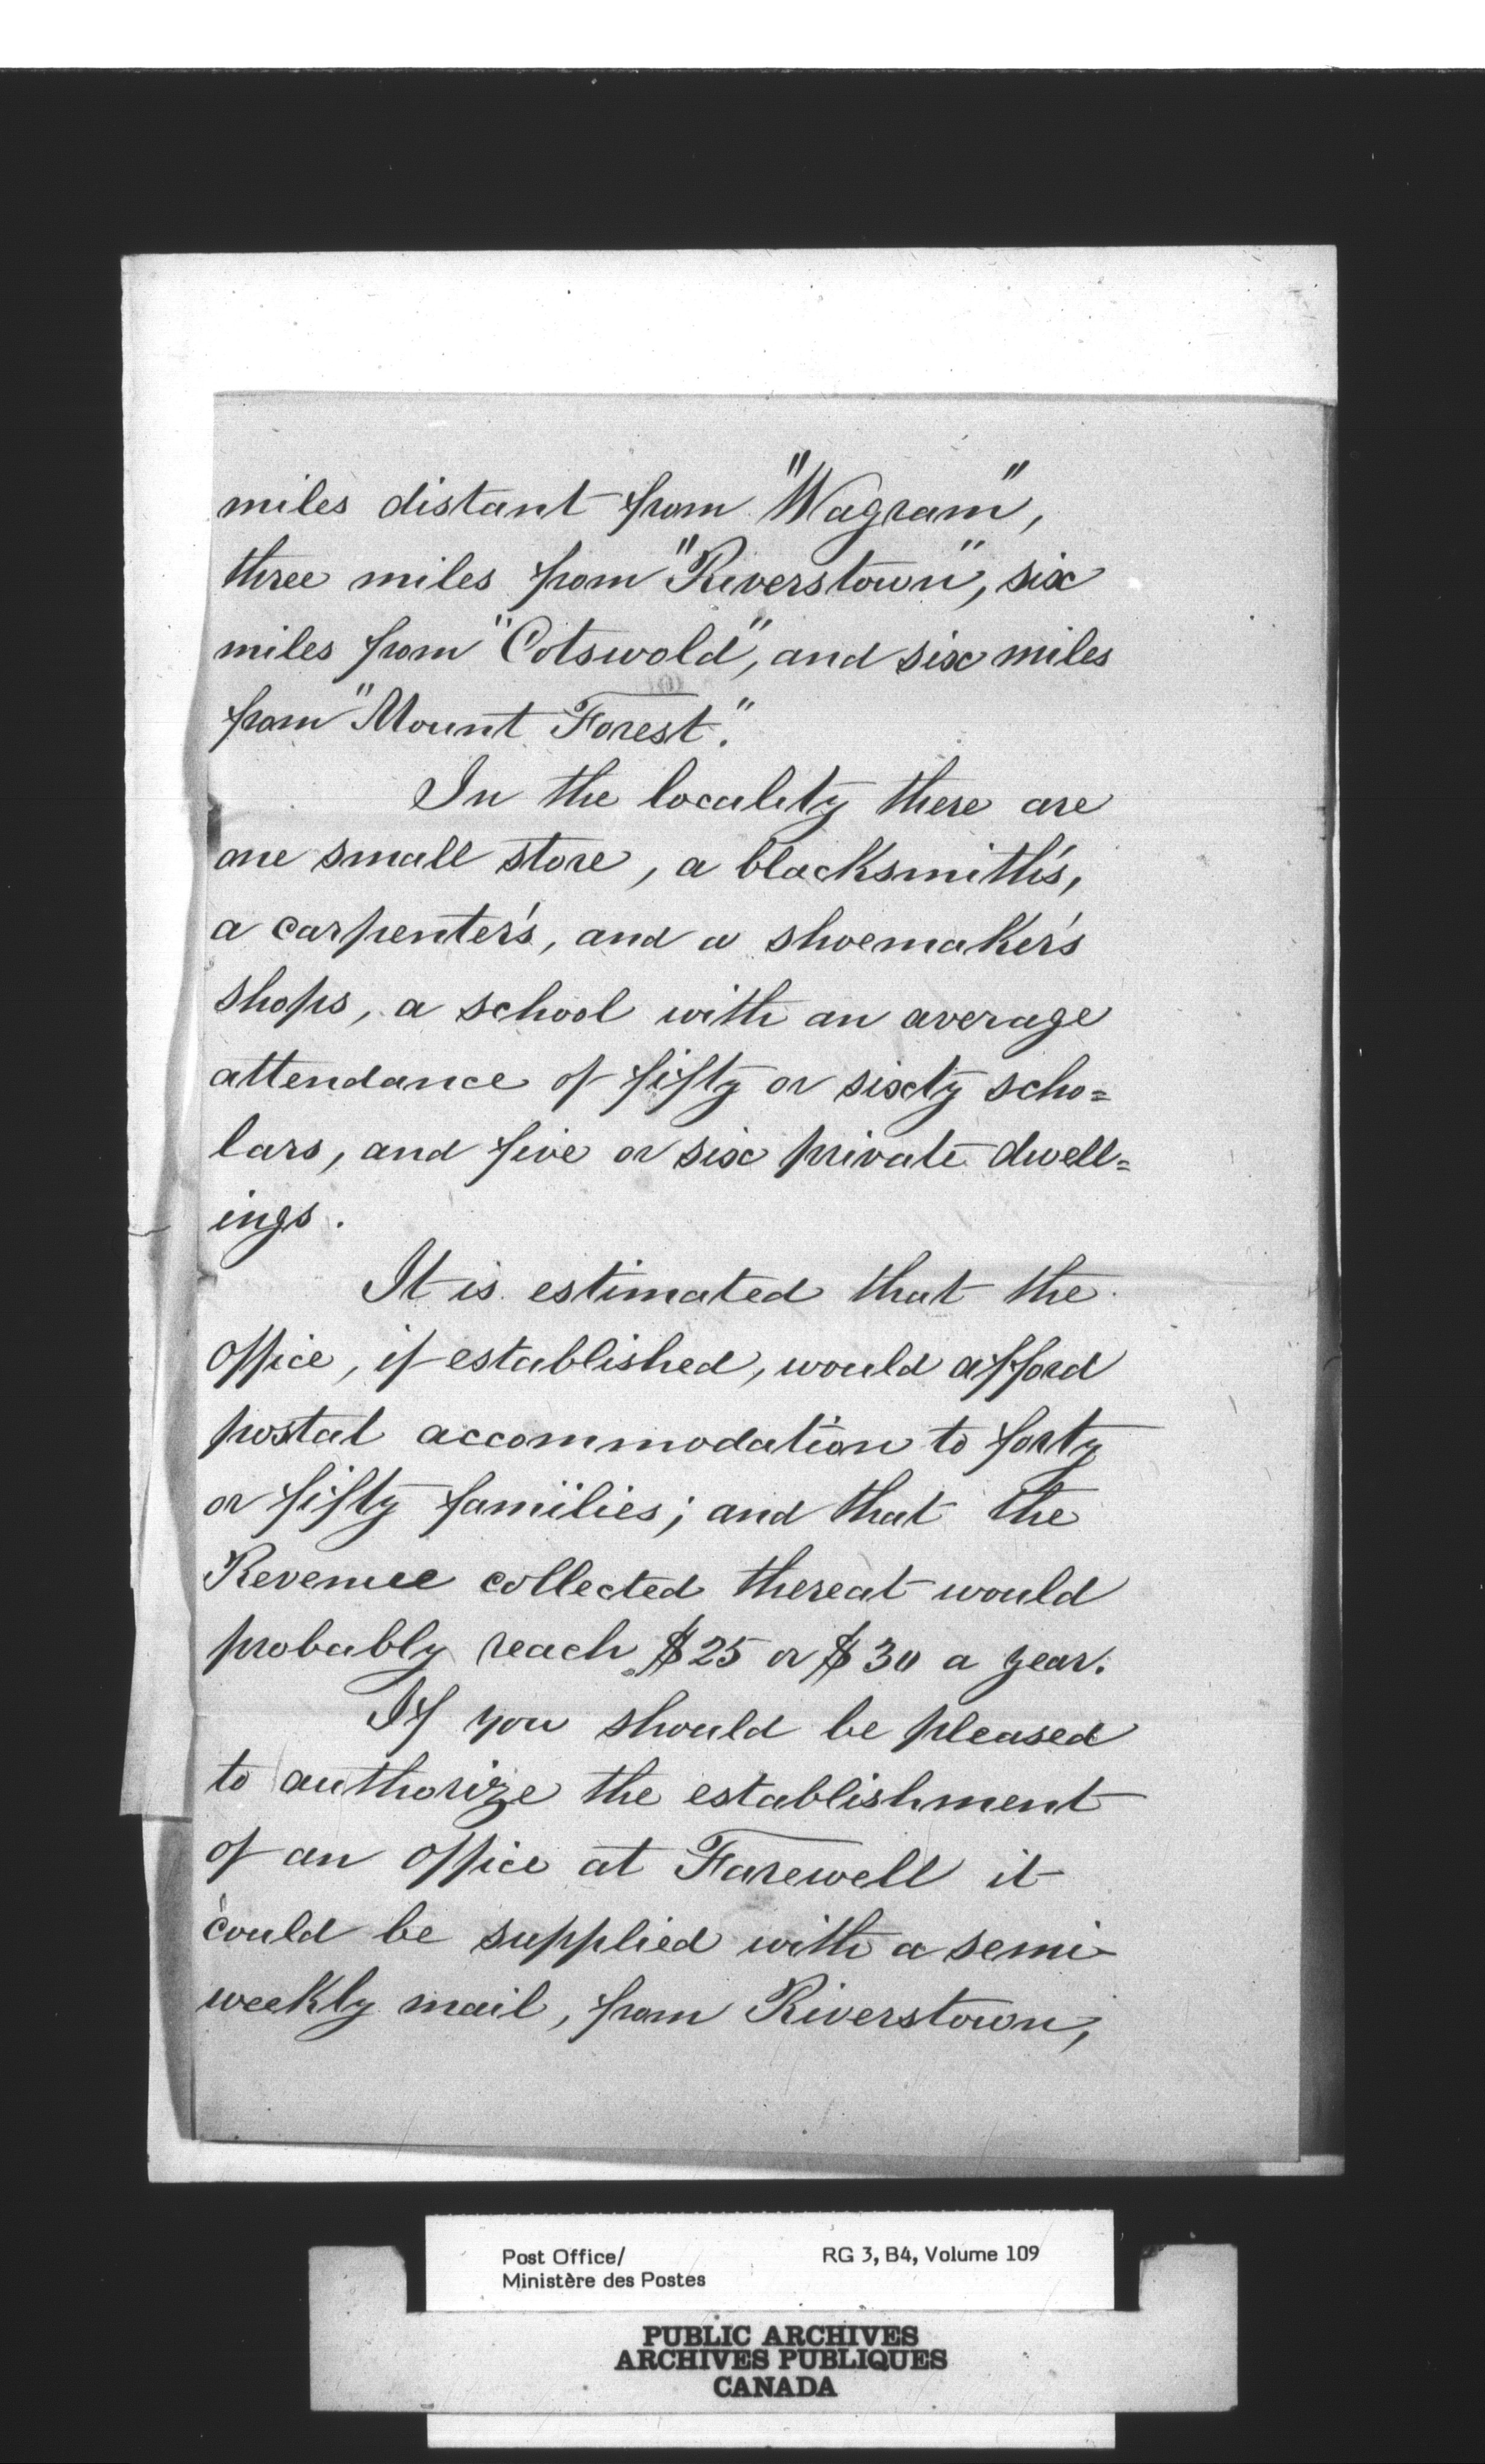 miles distant from "Wagram",
three miles from "Riverstown", six
miles from "Cotswold", and six miles
from "Mount Forest."
In the locality there are
one small store, a blacksmith's,
a carpenter's, and a shoemaker's
shops, a school with an average
attendance of fifty or sixty scho=
lars, and five or six private dwell=
ings.
It is estimated that the
office, if established, would afford
postal accommodation to forty
or fifty families; and that the
Revenue collected thereat would
probably reach $25 or $30 a year.
If you should be pleased
to authorize the establishment
of an office at Farewell it
could be supplied with a semi-
weekly mail, from Riverstown,
Post Office/ RG 3, B4, Volume 109
Ministère des Postes
PUBLIC ARCHIVES
ARCHIVES PUBLIQUES
CANADA